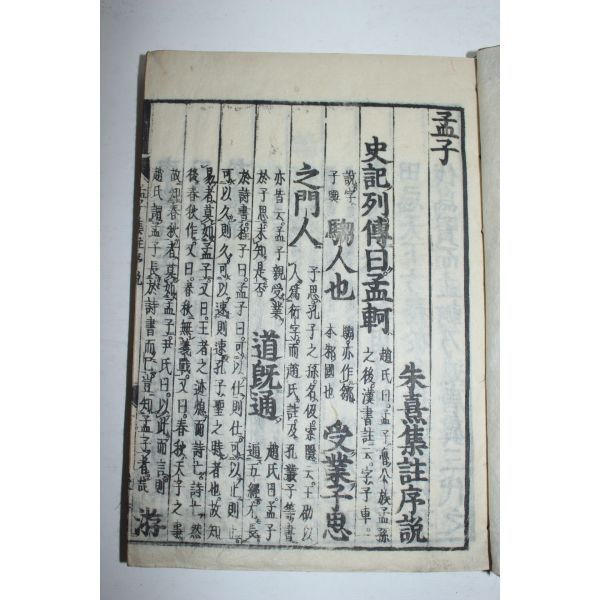 孟子
朱熹集註序說
史記列傳曰孟軻
趙氏曰孟子魯公族孟孫
之後漢書註云字子車
說字
子輿
騶人也
騶亦作鄒
本邾國也
受業子思
之門人
子思孔子之孫名伋索隱云王劭以
人爲衍字而趙氏註及孔叢子等書
亦皆云孟子親受業
於子思未知是否
道旣通
趙氏曰孟子
通五經尤長
於詩書程子曰孟子曰可以仕則仕可以止則止
可以久則久可以速則速孔子聖之時者也故知
易者莫如孟子又曰王者之迹熄而詩亡詩亡然
後春秋作又曰春秋無義戰又曰春秋天子之事
故知春秋者莫如孟子尹氏曰以此而言則
趙氏謂孟子長於詩書而已豈知孟子者哉
游
孟子集註序說